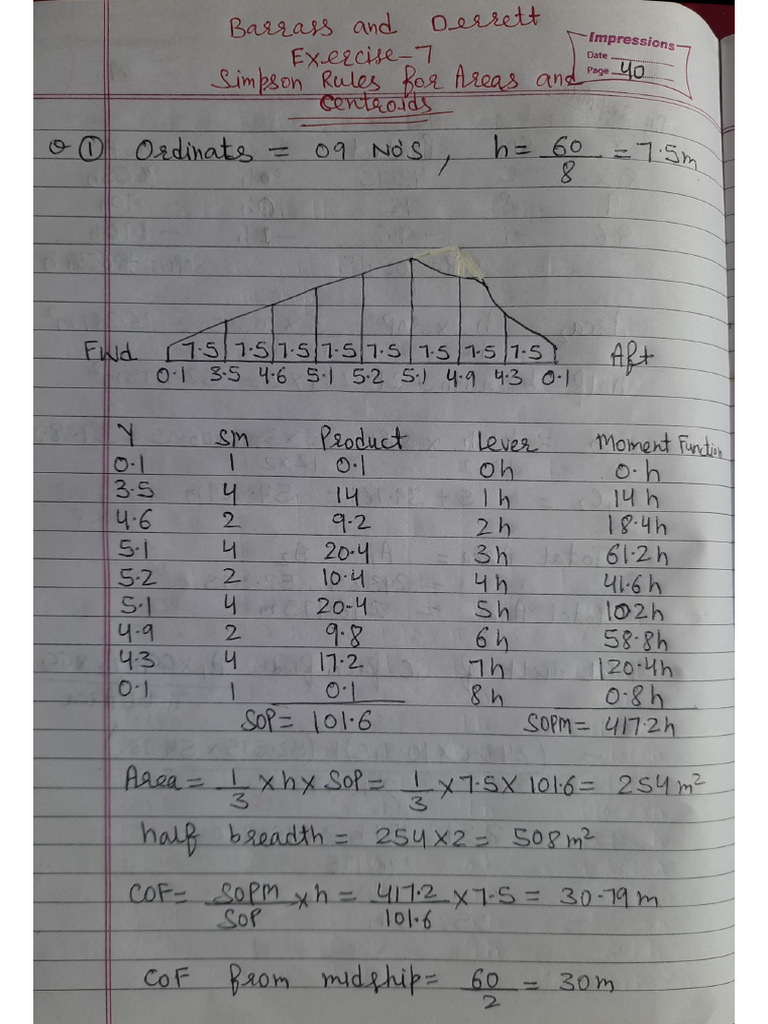 Barrass and Derrett
Exercise-7
Simpson Rules for Areas and
Centroids
Impressions
Date
Page 40
Q ① Ordinats = 09 NO'S, h = 60/8 = 7.5m
Fwd 7.5 7.5 7.5 7.5 7.5 7.5 7.5 7.5 Aft
0.1 3.5 4.6 5.1 5.2 5.1 4.9 4.3 0.1
Y SM Product Lever Moment Function
0.1 1 0.1 0h 0.h
3.5 4 14 1h 14h
4.6 2 9.2 2h 18.4h
5.1 4 20.4 3h 61.2h
5.2 2 10.4 4h 41.6h
5.1 4 20.4 5h 102h
4.9 2 9.8 6h 58.8h
4.3 4 17.2 7h 120.4h
0.1 1 0.1 8h 0.8h
SOP = 101.6 SOPM = 417.2h
Area = 1/3 × h × SOP = 1/3 × 7.5 × 101.6 = 254 m²
half breadth = 254 × 2 = 508 m²
COF = SOPM/SOP × h = 417.2/101.6 × 7.5 = 30.79 m
COF from midship = 60/2 = 30m